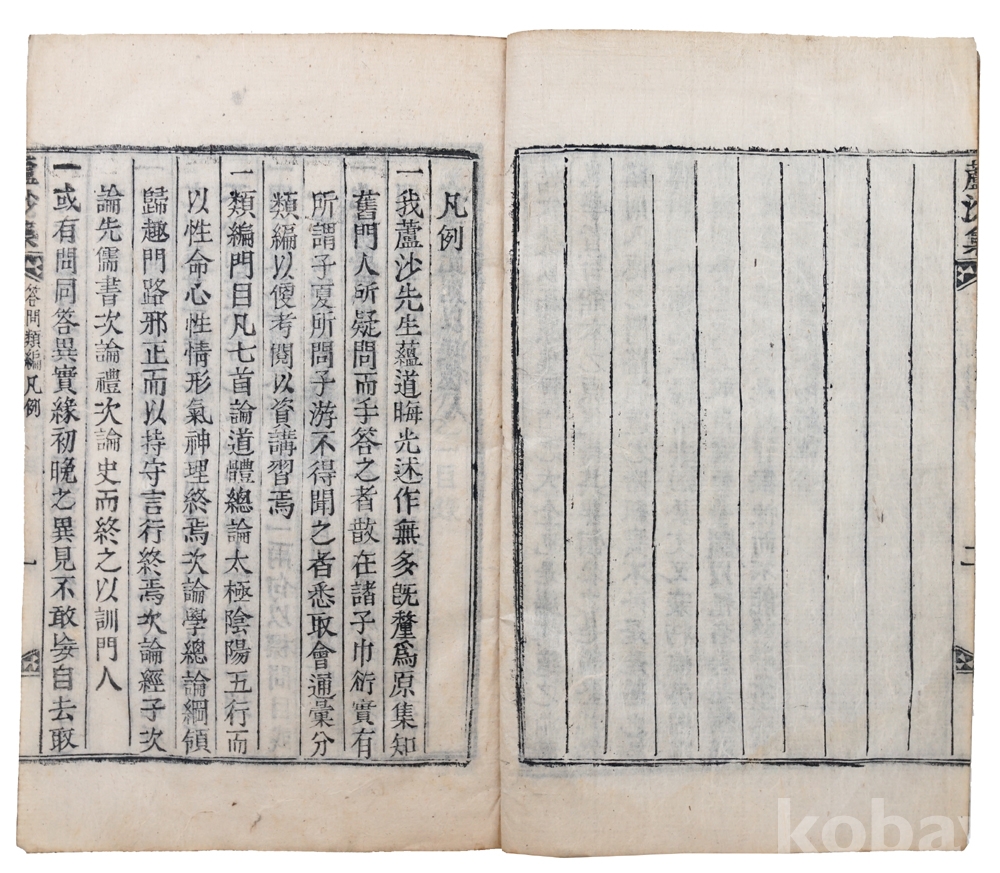 蘆沙集
二
凡例
一我蘆沙先生蘊道晦光述作無多旣釐爲原集知
舊門人所疑問而手答之者散在諸子巾衍實有
所謂子夏所問子游不得聞之者悉取會通彙分
類編以便考閱以資講習焉
一類編門目凡七首論道體總論太極陰陽五行而
以性命心性情形氣神理終焉次論學總論綱領
歸趣門路邪正而以持守言行終焉次論經子次
論先儒書次論禮次論史而終之以訓門人
一或有問同答異實緣初晩之異見不敢妄自去取
蘆沙集
答問類編凡例
一
koba